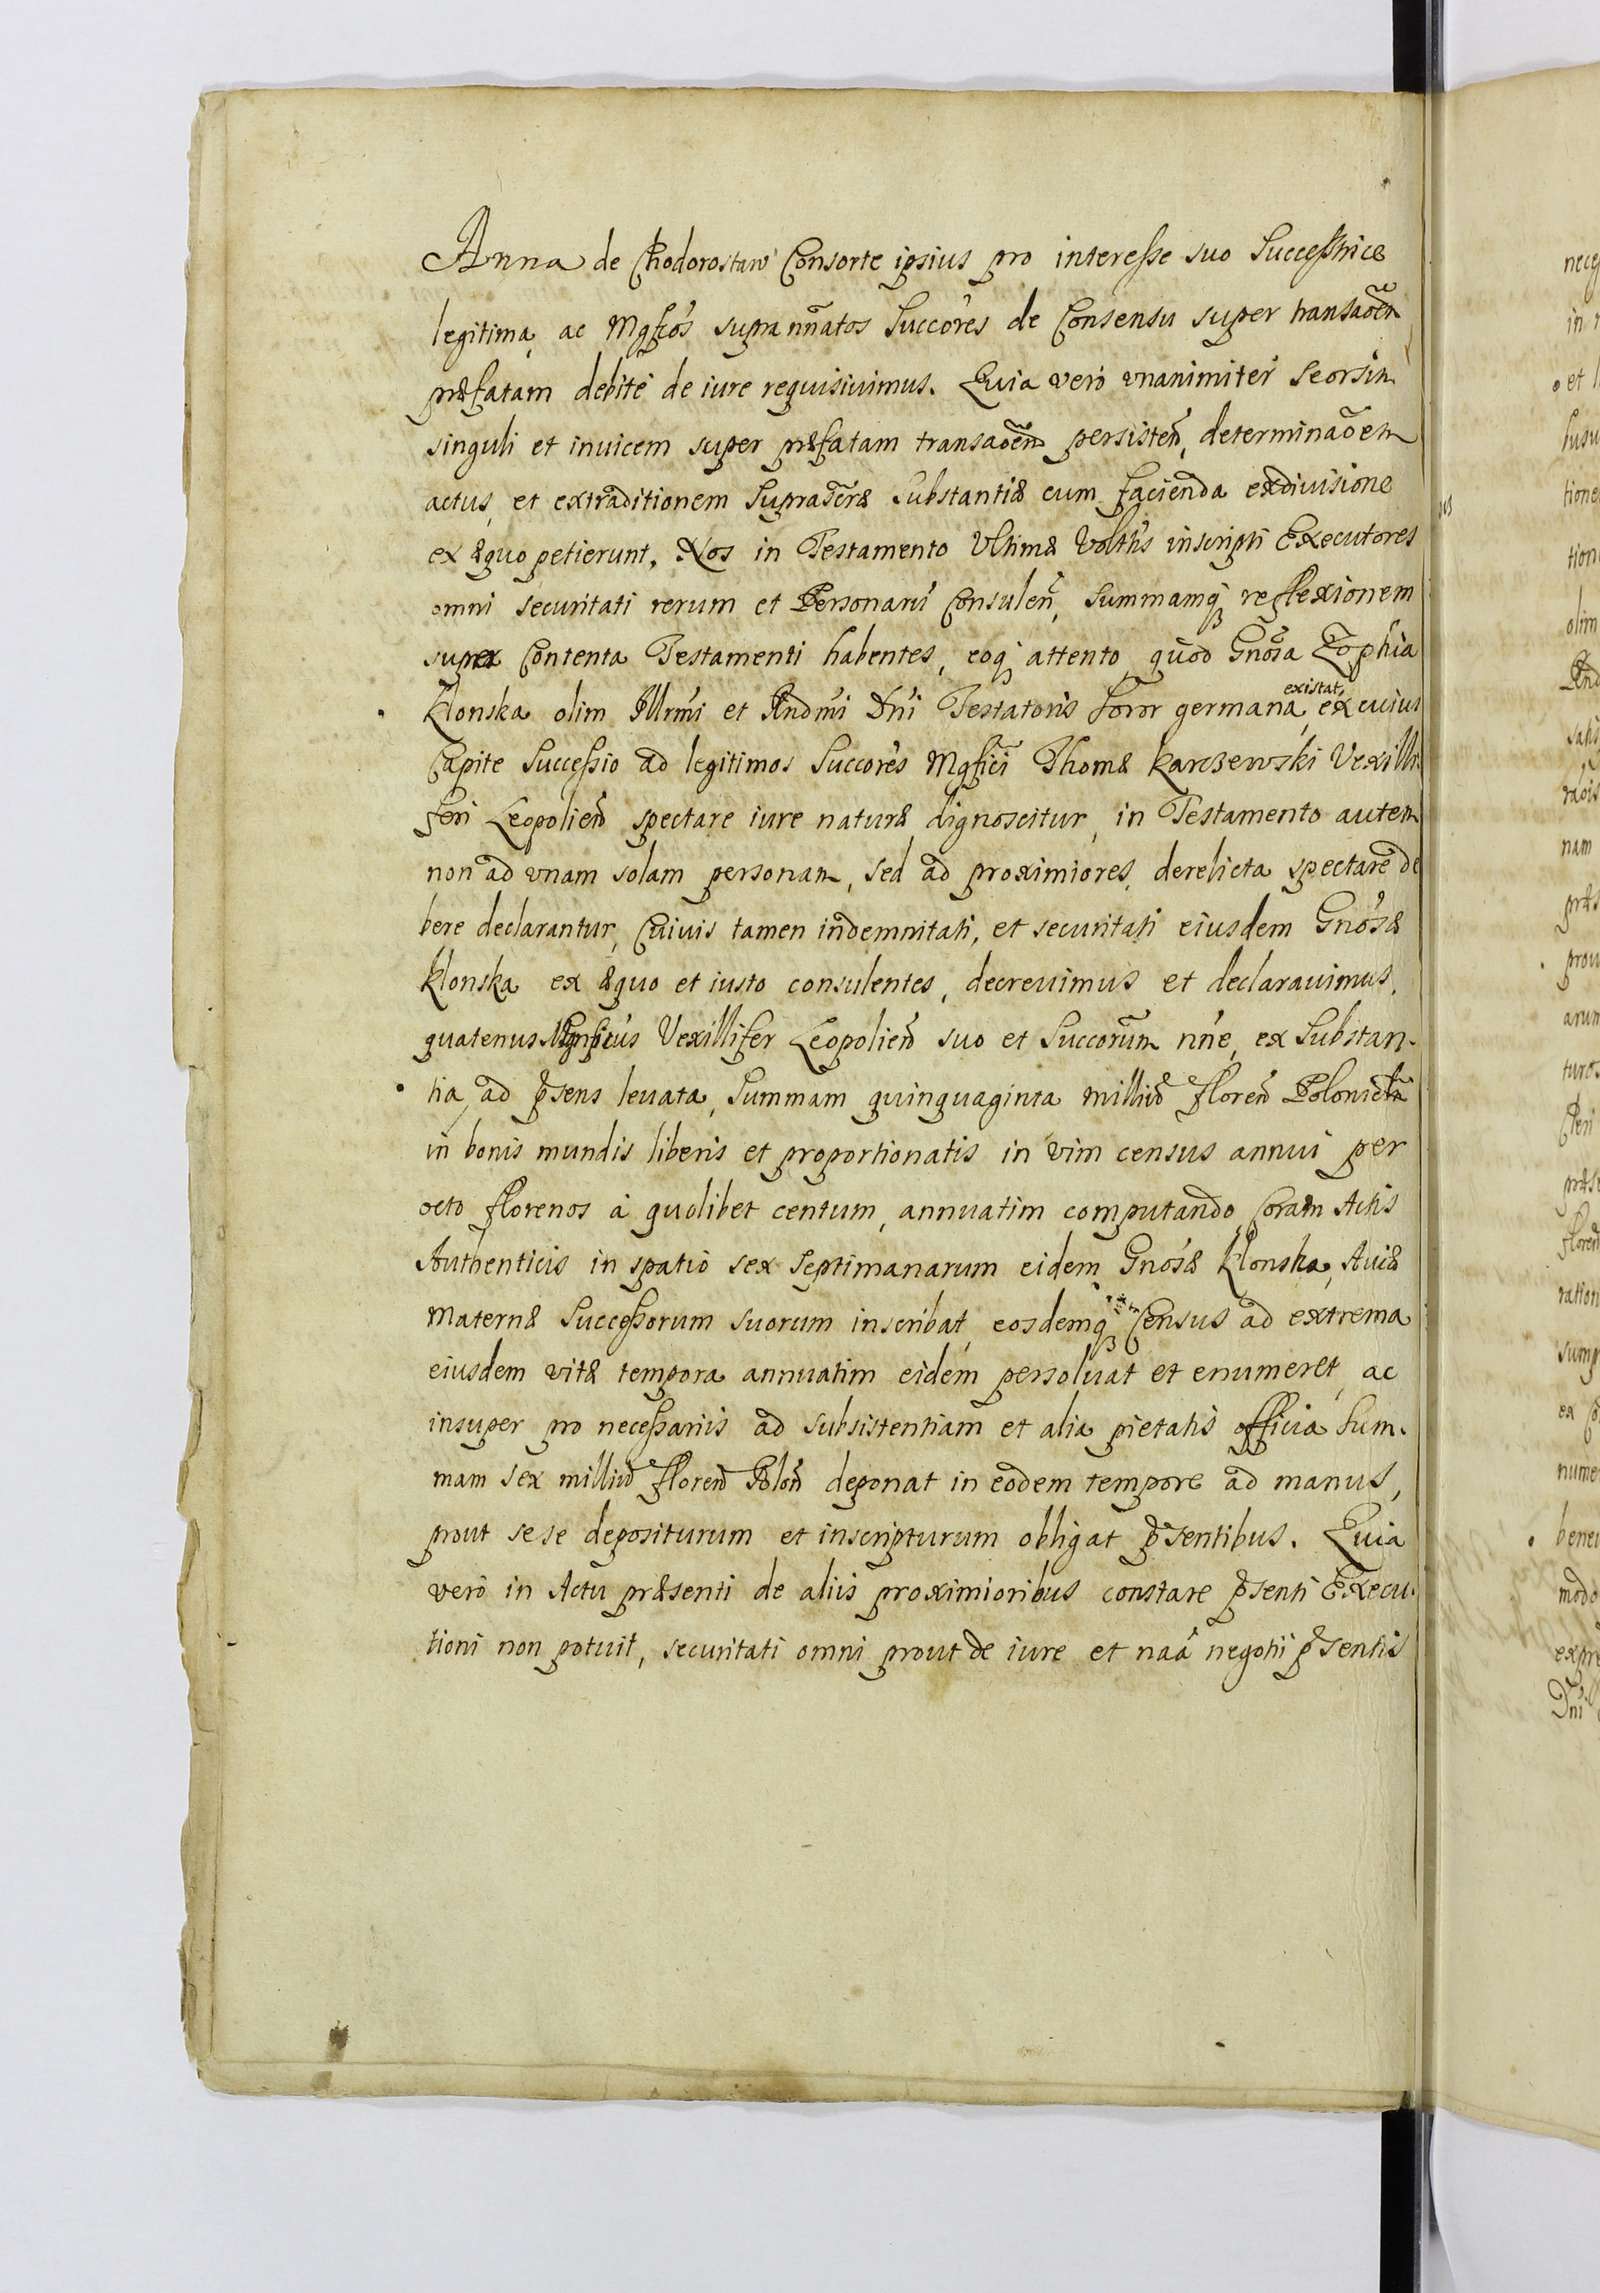 Anna de Chodorostaw Consorte ipsius pro interesse suo Successtrice
legitima, ac Mgficos supranñatos Succores de Consensu super transaõem
præfatam debite de iure requisiuimus. Quia vero vnanimiter seorsim
singuli et inuicem super præfatam transaõem persisteñ, determinaõem
actus, et extraditionem Suprascræ Substantiæ cum facienda exdiuisione
ex æquo petierunt. Nos in Testamento Vltimæ Volths inscripti Executores
omni securitati rerum et Personarũ Consuleñ, Summamq̃ reflexionem
super Contenta Testamenti habentes, eoq̃ attento quod Gnosa Zophia
Klonska olim Illrmi et Rndmi Dni Testatoris Soror germana existat, ex cuius
Capite Successio ad legitimos Succores Mgfici Thomæ Karczewski Vexilli
feri Leopolieñ spectare iure naturæ dignoscitur, in Testamento autem
non ad vnam solam personam, sed ad proximiores, derelicta spectare de
bere declarantur, Cuiuis tamen indemnitati, et securitati eiusdem Gnosæ
Klonska ex æquo et iusto consulentes, decreuimus et declarauimus,
quatenus Vexillifer Leopolieñ suo et Succorum nñe, ex Substan-
tia, ad p̃sens leuata, Summam quinquaginta milliũ floreñ
in bonis mundis liberis et proportionatis in vim census annui per
octo florenos à quolibet centum, annuatim computando, Coram Actis
Authenticis in spatio sex septimanarum eidem Gnosæ Klonska, Auiæ
Maternæ Successorum suorum inscribat, eosdemq̃ Census ad extrema
eiusdem vitæ tempora annuatim eidem persoluat et enumeret, ac
insuper pro necessariis ad subsistentiam et alia pietatis officia Sum-
mam sex milliũ floreñ Poloñ deponat in eodem tempore ad manus,
prout sese depositurum et inscripturum obligat p̃sentibus. Quia
vero in Actu præsenti de aliis proximioribus constare p̃senti Execu-
tioni non potuit, securitati omni prout de iure et naã negotii p̃sentis